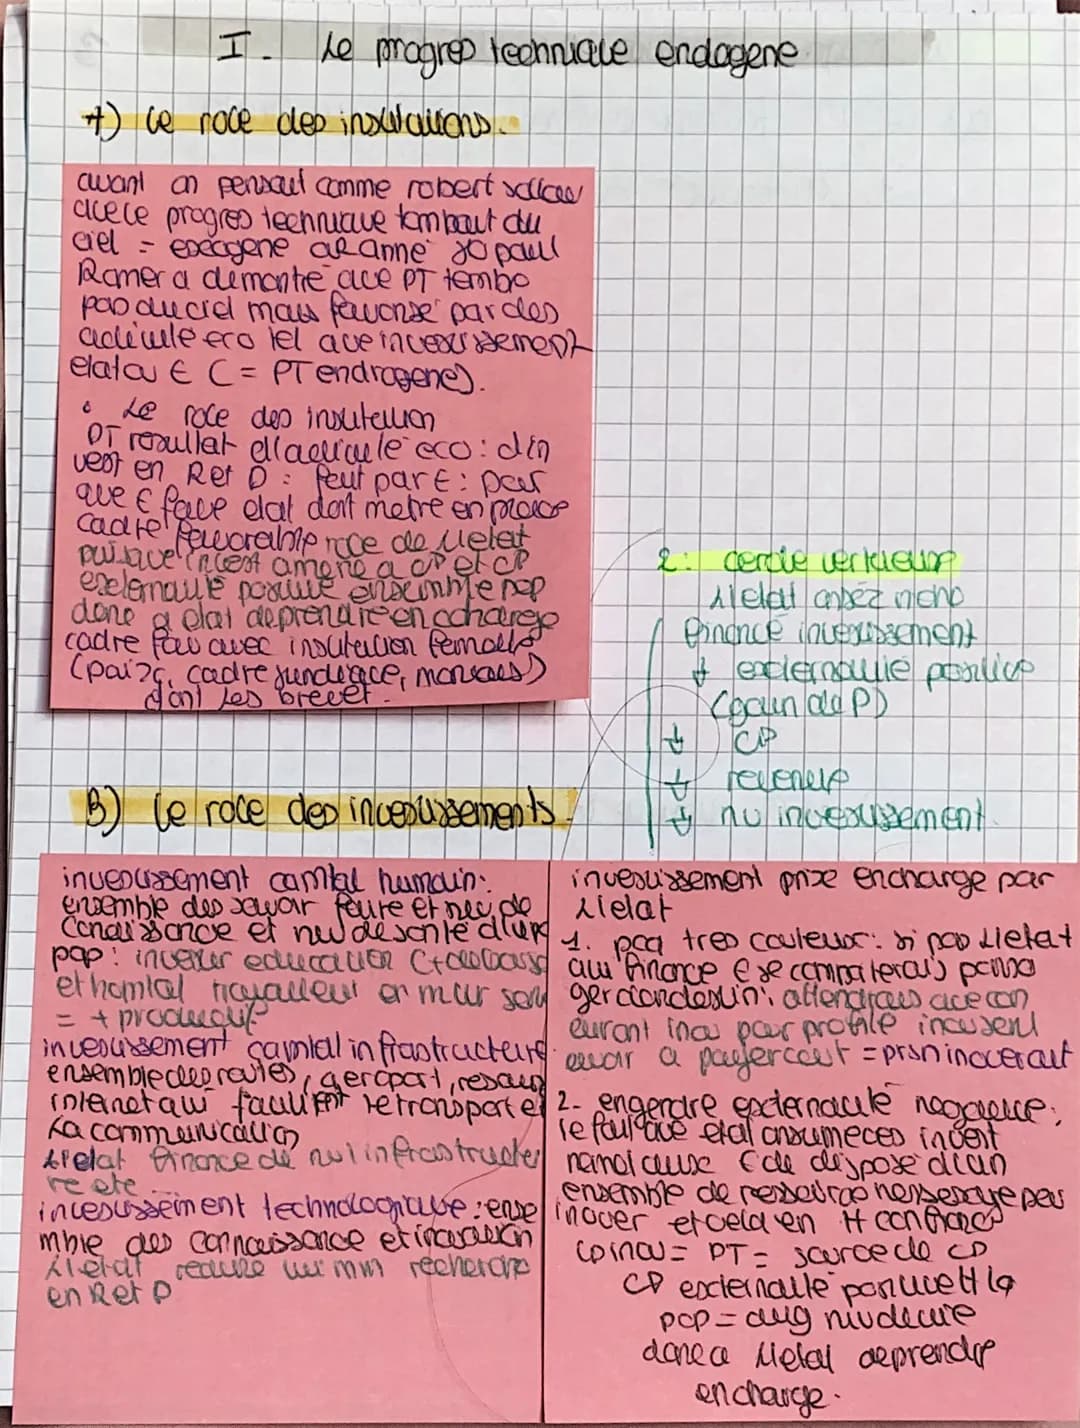 I. Le progres technique endogene
A) Le role des institutions.
avant on pensait comme robert sollow
que le progres technique tombait du
ciel = exogene année 80 paul
Romer a démontré que PT tombe
pas du ciel mais favorisé par des
activité eco tel que investissement
etat ou € (= PT endrogene).
• Le role des institution
PT resultat d'activité eco : d'in
vest en R et D : peut par € : pour
que € fasse etat doit metre en place
cadre favorable role de l'etat
puisque invest amene a et CP
externalité positive ensemble pop
donc a etat de prendre en charge
cadre fav avec institution formelle
(paix, cadre juridique, monnaies)
dont les brevet.
2: cercle vertueux
L'etat assez riche
finance investissement
↓ externalité positive
(gain de P)
↓ CP
↓ revenue
↓ nv investissement
B) Le role des investissements.
investissement capital humain:
ensemble des savoir faire et niv de
conaissance et niv de santé d'une
pop : investir education
et hopital travailleur en meilleur santé
= + productif
investissement capital infrastructure
ensemble des routes, aeroport, resaux
internet qui facilitent le transport et
La communication
L'etat finance de nvl infrastructu
re ete
investissement technologique : ense
mble des connaissance et inovation
L'etat recherche
en R et D
investissement prise encharge par
L'etat
1. pcq tres couteux : si pas L'etat
qui finance € se comporterais passa
ger clandestin : attendrais que con
curant inov pour profité inov sans
avoir a payer cout = prsn inoverait
2- engendre externalité negative :
le faut que etat assume ces invest
€ de disposé d'un
ensemble de ressource nessessaye pour
inover et cela en
inov = PT = source de CP
CP externalité positive la
pop = aug niv de vie
donc a L'etat de prendre
en charge.